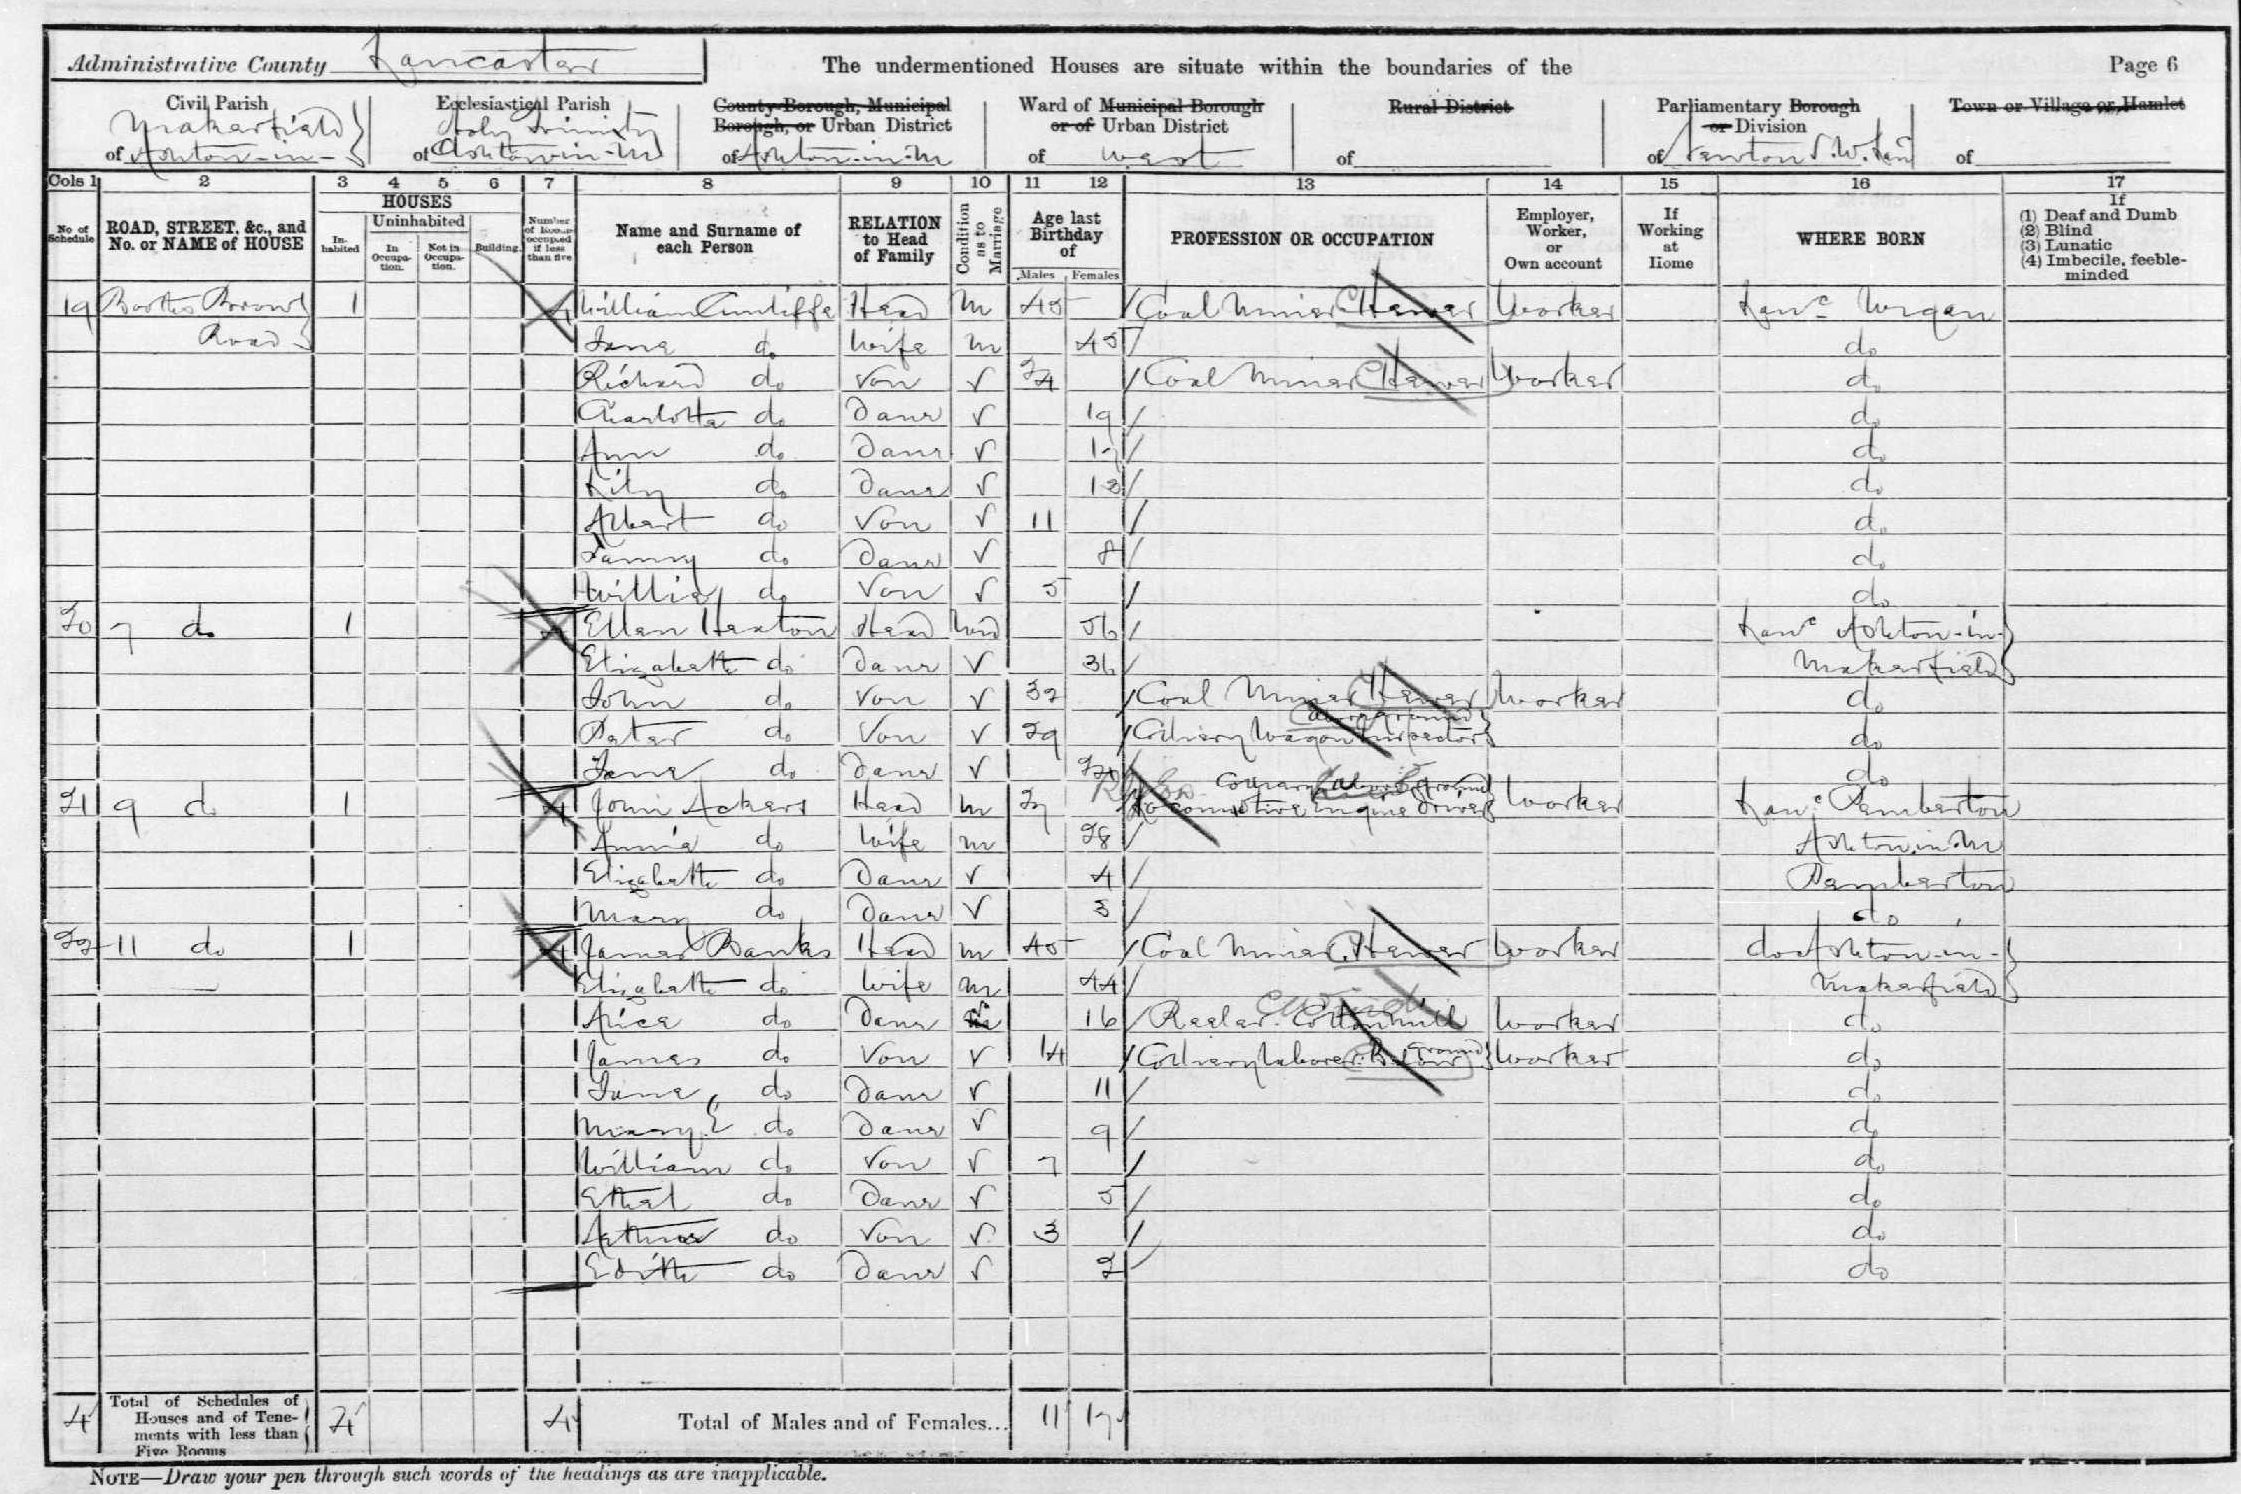 Administrative County Lancaster The undermentioned Houses are situate within the boundaries of the Page 6
Civil Parish Ecclesiastical Parish County Borough, Municipal Borough, or Urban District Ward of Municipal Borough or of Urban District Rural District Parliamentary Borough or Division Town or Village or Hamlet
Makerfield Holy Trinity
of Ashton-in- of Ashton in M of Ashton-in-M of West of of Newton S.W. Lanc of
Cols 1 2 3 4 5 6 7 8 9 10 11 12 13 14 15 16 17
No. of Schedule ROAD, STREET, &c., and No. or NAME of HOUSE HOUSES Inhabited Uninhabited In Occupation. Not in Occupation. Building Number of Rooms occupied if less than five Name and Surname of each Person RELATION to Head of Family Condition as to Marriage Age last Birthday of Males Females PROFESSION OR OCCUPATION Employer, Worker, or Own account If Working at Home WHERE BORN If (1) Deaf and Dumb (2) Blind (3) Lunatic (4) Imbecile, feeble-minded
19 Booths Brow 1 4 William Cunliffe Head M 45 Coal Miner Hewer Worker Lanc Wigan
Road Jane do Wife M 45 do
Richard do Son 24 Coal Miner Hewer Worker do
Charlotte do Daur 19 do
Ann do Daur 17 do
Lily do Daur 13 do
Albert do Son 11 do
Fanny do Daur 8 do
Willie do Son 5 do
20 7 do 1 4 Ellen Hexton Head Wid 56 Lanc Ashton-in-
Elizabeth do Daur 36 Makerfield
John do Son 32 Coal Miner Hewer Worker do
above ground
Peter do Son 29 Colliery Wagon Inspector do
Jane do Daur do
Colliery above ground
21 9 do 1 4 John Ackers Head M 27 Locomotive Engine Driver Worker Lanc Pemberton
Annie do Wife M 28 Ashton in M
Elizabeth do Daur 4 Pemberton
Mary do Daur 3 do
22 11 do 1 4 James Banks Head M 45 Coal Miner Hewer Worker do Ashton-in-
Elizabeth do Wife M 44 Makerfield
Alice do Daur 16 Reeler Cotton Mill Worker do
Ground
James do Son 14 Colliery Laborer Worker do
Jane do Daur 11 do
Mary E do Daur 9 do
William do Son 7 do
Ethel do Daur 5 do
Arthur do Son 3 do
Edith do Daur 2 do
4 Total of Schedules of Houses and of Tenements with less than Five Rooms 4 4 Total of Males and of Females... 11 17
NOTE—Draw your pen through such words of the headings as are inapplicable.